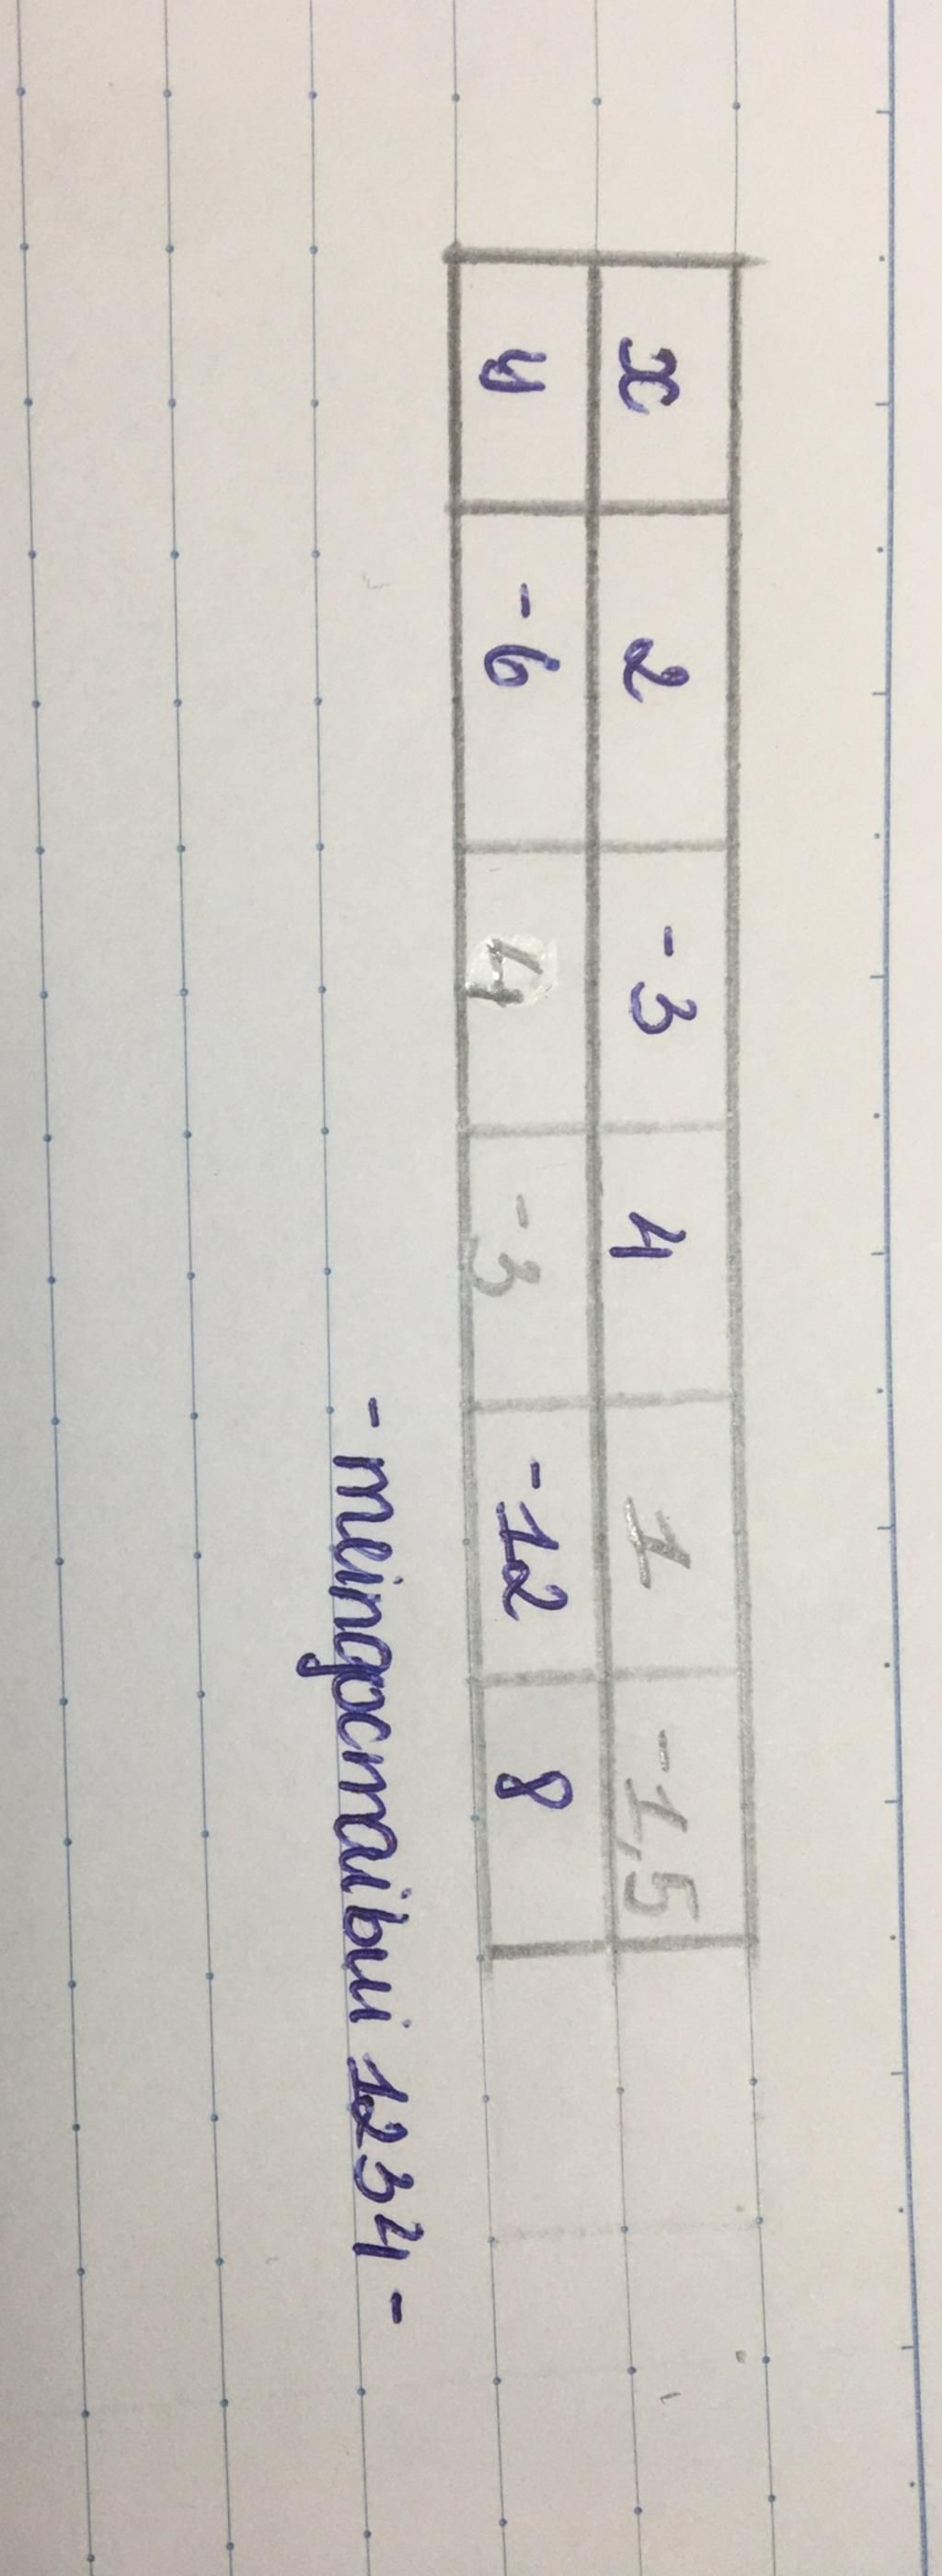 x 2 -3 4 1 -1,5
y -6 4 -3 -12 8
- meingocmaibui 1234 -